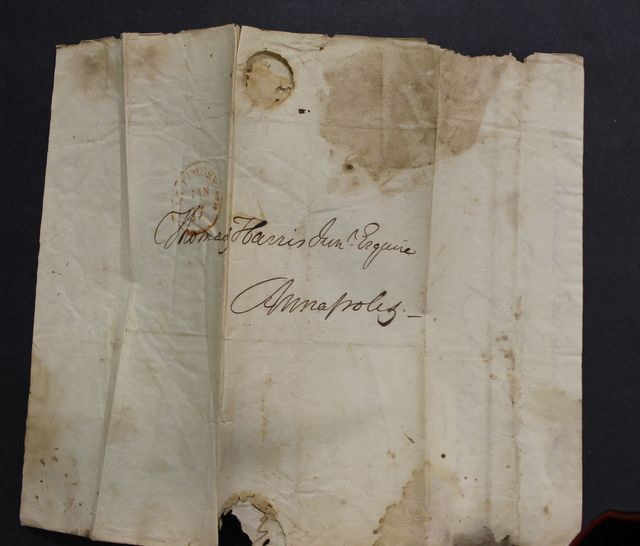 JAN
Thomas Harris Junr. Esquire
Annapolis. —